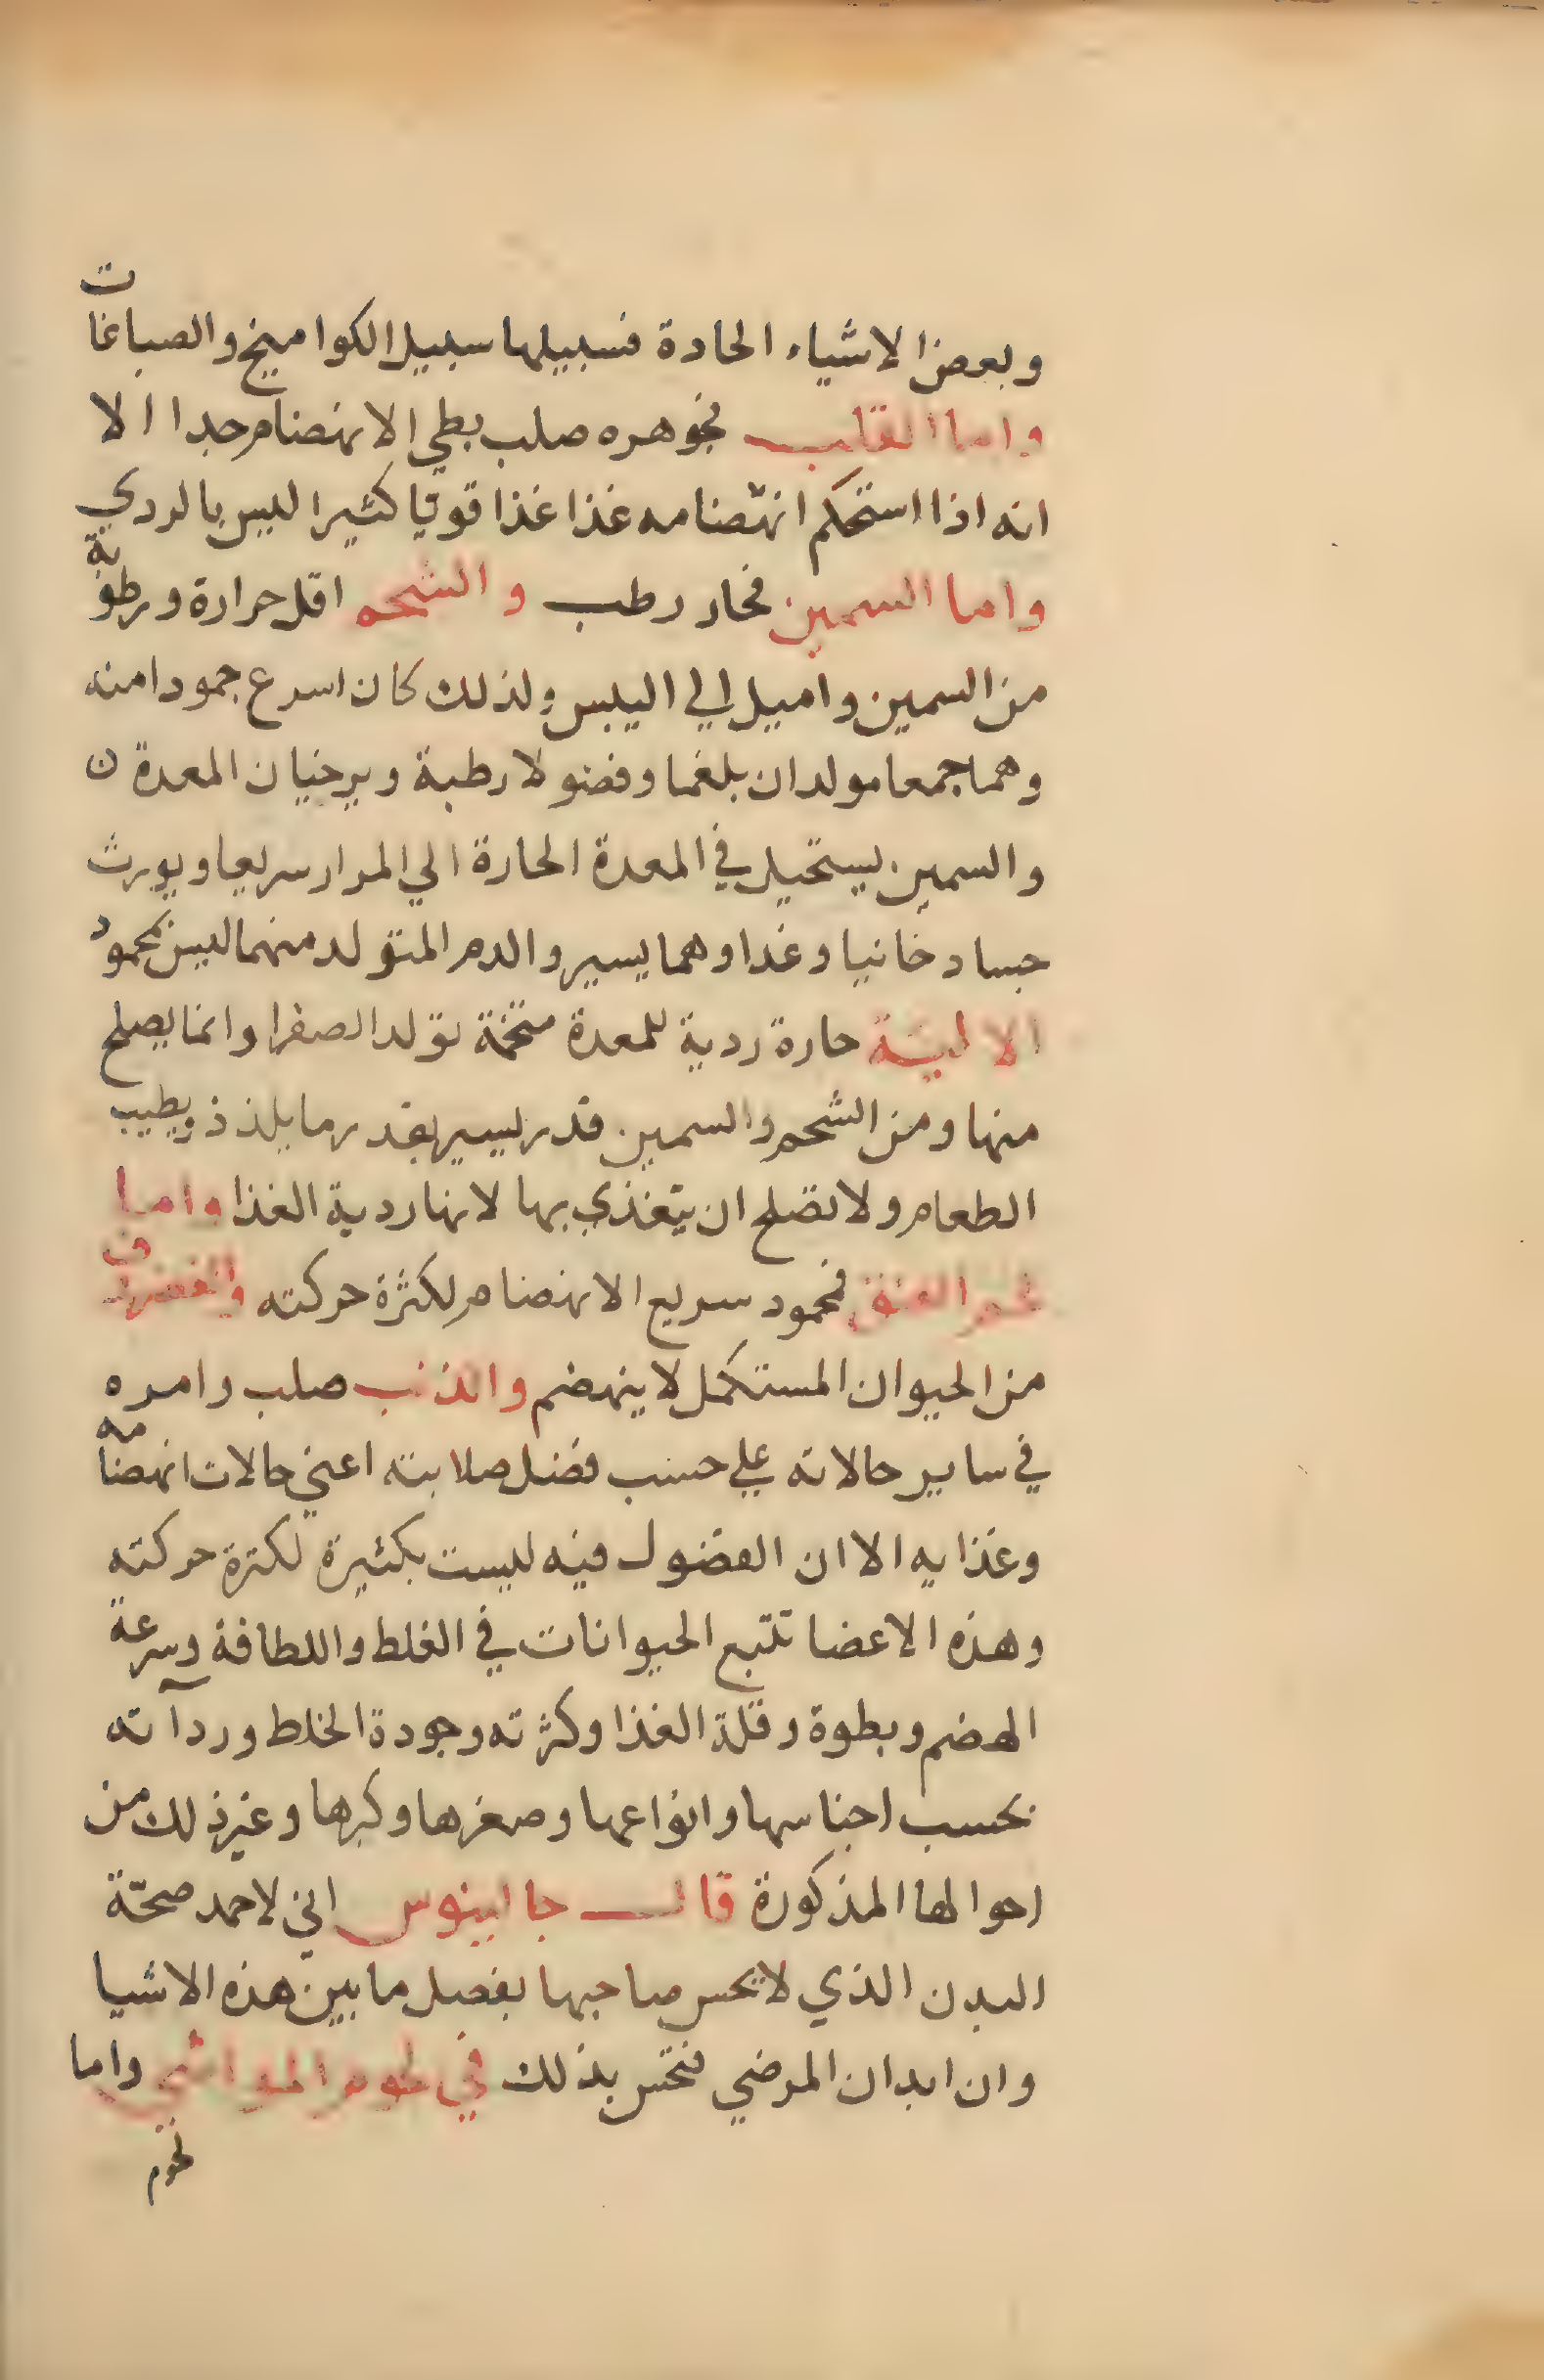 وبعض الاشياء الحادة فسبيلها سبيل الكواميخ والصباغات
واما القلب فجوهره صلب بطي الانهضام جدا الا
انه اذا استحكم انهضامه غذا غذا قويا كثيرا ليس بالردي
واما السمين فحار رطب والشحم اقل حرارة ورطوبة
من السمين واميل الي اليبس ولذلك كان اسرع جمودا منه
وهما جمعا مولدان بلغما وفضولا رطبة ويرخيان المعدة ن
والسمين يستحيل في المعدة الحارة الي المرار سريعا ويورث
جسا دخانيا وغداوهما يسير والدم المتولد منهما ليس بمحمود
الالية حارة ردية للمعدة متخمة تولد الصفرا وانما يصلح
منها ومن الشحم والسمين قدر يسير بقدر ما يلذذ ويطيب
الطعام ولا تصلح ان يتغذي بها لانها ردية الغذا واما
لحم العنق فمحمود سريع الانهضام لكثرة حركته والغضروف
من الحيوان المستكمل لا ينهضم والذنب صلب وامره
في ساير حالاته علي حسب فضل صلابته اعني حالات انهضامه
وغذايه الا ان الفضول فيه ليست بكثيرة لكثرة حركته
وهذه الاعضا تتبع الحيوانات في الغلط واللطافة وسرعة
الهضم وبطوة وقلة الغذا وكثرته وجودة الخلط وردآته
بحسب اجناسها وانواعها وصغرها وكبرها وغير ذلك من
احوالها المذكورة قال جالينوس اني لاحمد صحّة
البدن الذي لا يحس صاحبها بفصل ما بين هذه الاشيا
وان ابدان المرضي فتحس بذلك في لحوم المواشي واما
لحوم